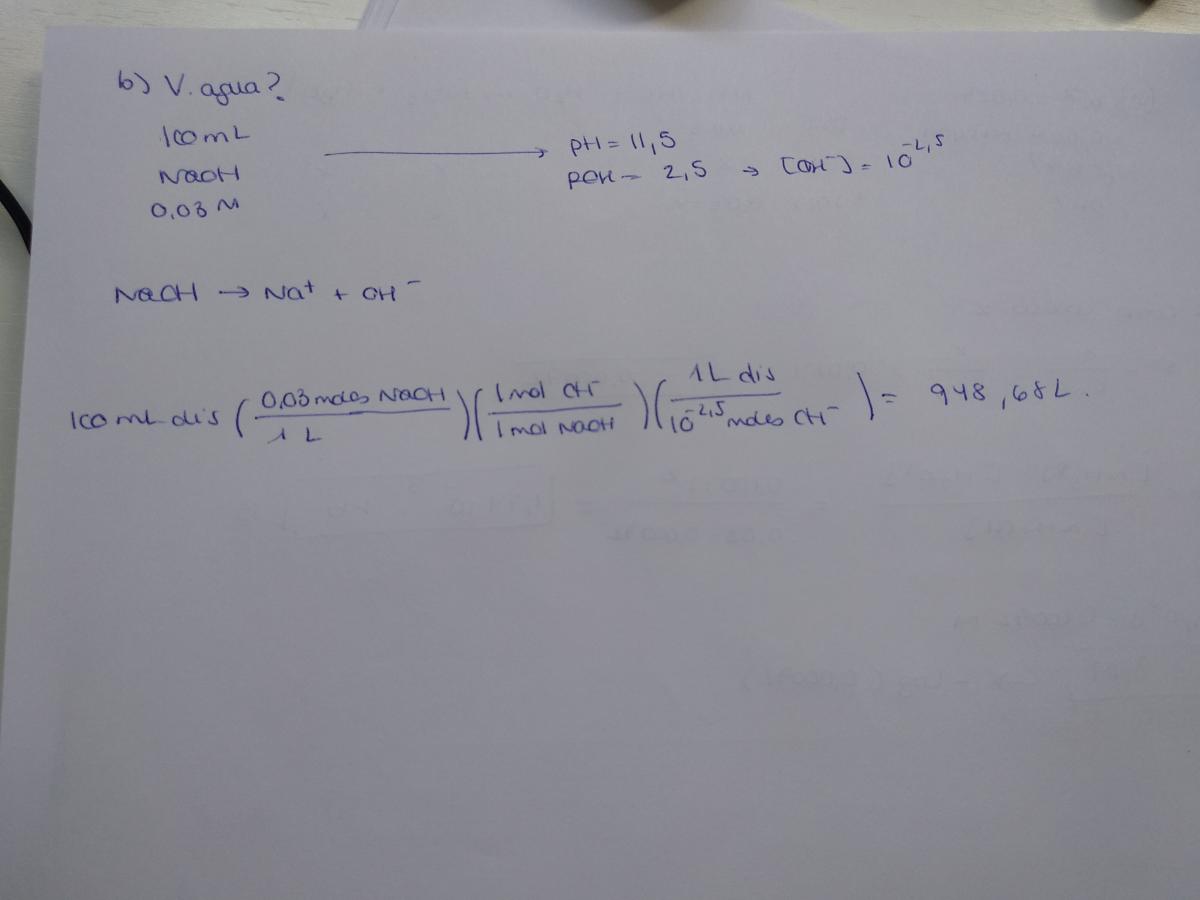 b) V. agua?
100 mL
NaOH
0,03 M
pH = 11,5
pOH = 2,5 → [OH⁻] = 10^-2,5
NaOH → Na⁺ + OH⁻
100 mL dis (0,03 moles NaOH / 1 L)(1 mol OH⁻ / 1 mol NaOH)(1 L dis / 10^-2,5 moles OH⁻) = 948,68 L.